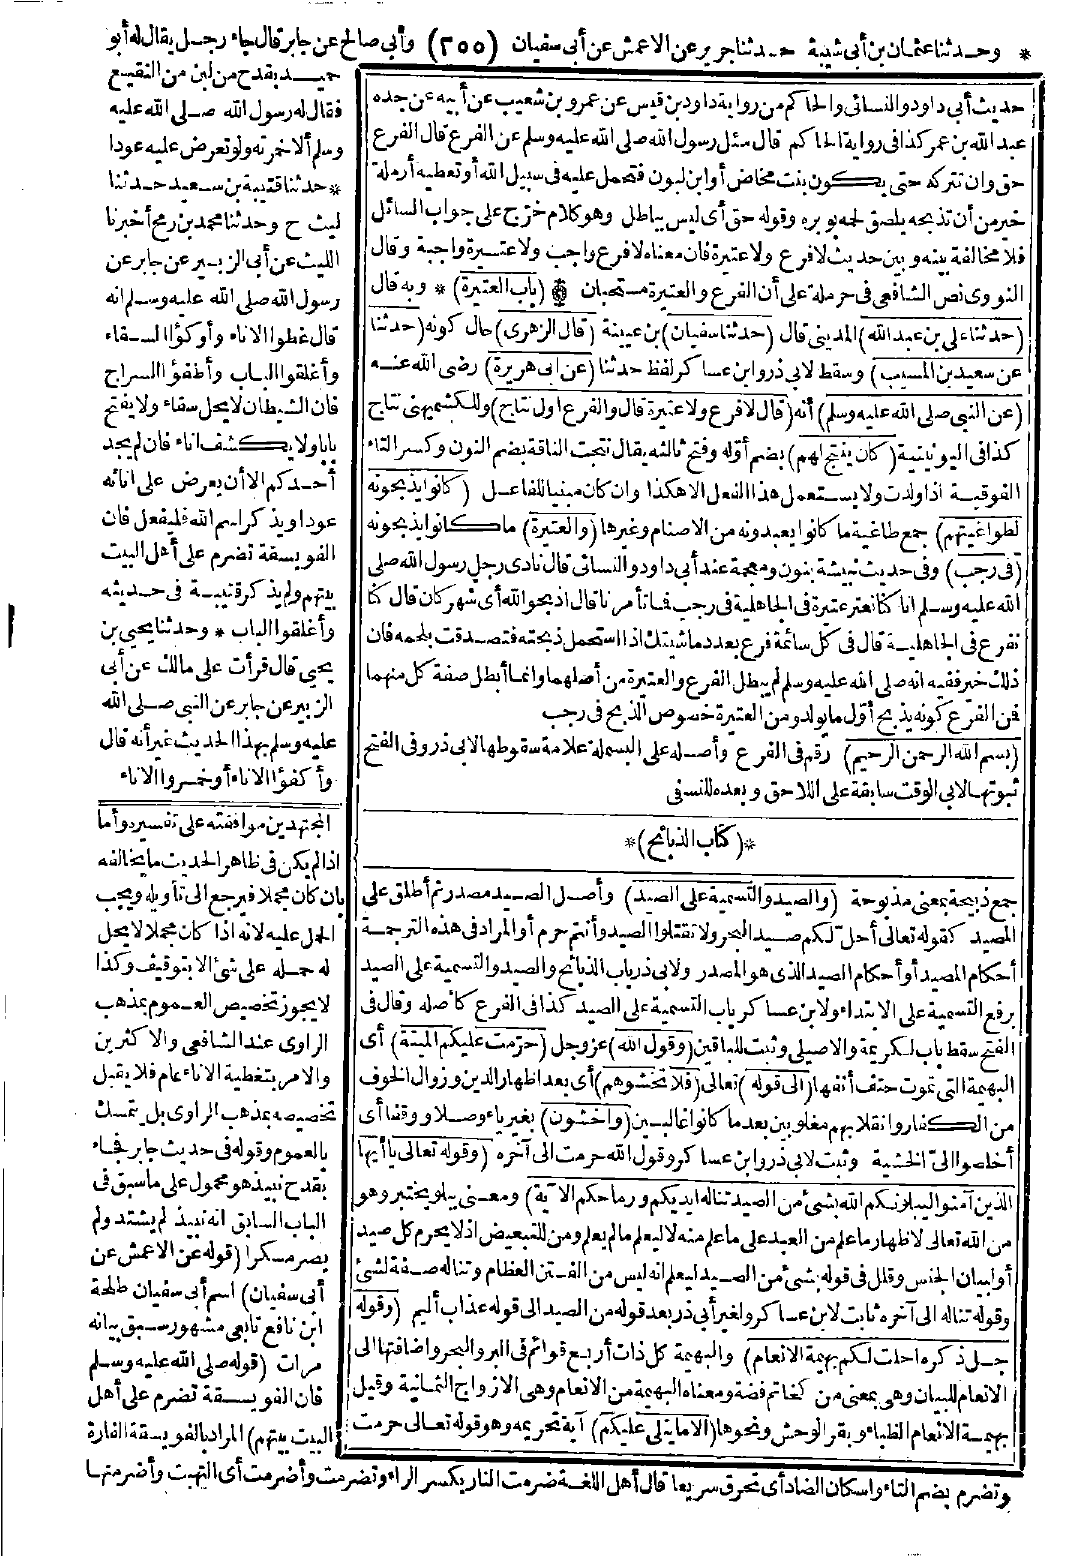 * وحدثنا عثمان بن أبي شيبة حدثنا جرير عن الاعمش عن أبي سفيان (٢٥٥) وأبي صالح عن جابر قال جاء رجل يقال له أبو
حميد بقدح من لبن من النقيع
فقال له رسول الله صلى الله عليه
وسلم ألا خمرته ولو تعرض عليه عودا
* حدثنا قتيبة بن سعيد حدثنا
ليث ح وحدثنا محمد بن رمح أخبرنا
الليث عن أبي الزبير عن جابر عن
رسول الله صلى الله عليه وسلم انه
قال غطوا الاناء وأوكؤا السقاء
وأغلقوا الباب وأطفؤا السراج
فان الشيطان لا يحل سقاء ولا يفتح
بابا ولا يكشف اناء فان لم يجد
أحدكم الا أن يعرض على انائه
عودا ويذكر اسم الله فليفعل فان
الفويسقة تضرم على أهل البيت
بيتهم ولم يذكر قتيبة فى حديثه
وأغلقوا الباب * وحدثنا يحيى بن
يحيى قال قرأت على مالك عن أبي
الزبير عن جابر عن النبي صلى الله
عليه وسلم بهذا الحديث غير أنه قال
وأكفؤا الاناء أو خمروا الاناء
المجتهدين موافقته على تفسيره وأما
اذا لم يكن فى ظاهر الحديث ما يخالفه
بان كان مجملا فيرجع الى تأويله ويجب
الحمل عليه لانه اذا كان مجملا لا يحل
له حمله على شئ الا بتوقيف وكذا
لا يجوز تخصيص العموم بمذهب
الراوى عند الشافعى والاكثرين
والامر بتغطية الاناء عام فلا يقبل
تخصيصه بمذهب الراوى بل يتمسك
بالعموم وقوله فى حديث جابر فجاء
بقدح نبيذ هو محمول على ما سبق فى
الباب السابق انه نبيذ لم يشتد ولم
يصر مسكرا (قوله عن الاعمش عن
أبي سفيان) اسم أبي سفيان طلحة
ابن نافع تابعى مشهور سبق بيانه
مرات (قوله صلى الله عليه وسلم
فان الفويسقة تضرم على أهل
البيت بيتهم) المراد بالفويسقة الفارة
حديث أبي داود والنسائى والحاكم من رواية داود بن قيس عن عمرو بن شعيب عن أبيه عن جده
عبد الله بن عمر كذا فى رواية الحاكم قال سئل رسول الله صلى الله عليه وسلم عن الفرع قال الفرع
حق وان تتركه حتى يكون بنت مخاض أو ابن لبون فتحمل عليه فى سبيل الله أو تعطيه أرملة
خير من أن تذبحه يلصق لحمه بوبره وقوله حق أى ليس بباطل وهو كلام خرج على جواب السائل
فلا مخالفة بينه وبين حديث لا فرع ولا عتيرة فان معناه لا فرع واجب ولا عتيرة واجبة وقال
النووى نص الشافعى فى حرملة على أن الفرع والعتيرة مستحبان (باب العتيرة) * وبه قال
(حدثنا على بن عبد الله) المدينى قال (حدثنا سفيان) بن عيينة (قال الزهرى) حال كونه (حدثنا
عن سعيد بن المسيب) وسقط لابى ذر وابن عساكر لفظ حدثنا (عن أبى هريرة) رضى الله عنه
(عن النبى صلى الله عليه وسلم) أنه (قال لا فرع ولا عتيرة قال والفرع اول نتاج) وللكشميهنى نتاج
كذا فى اليونينية (كان ينتج لهم) بضم أوله وفتح ثالثه يقال نتجت الناقة بضم النون وكسر التاء
الفوقية اذا ولدت ولا يستعمل هذا الفعل الا هكذا وان كان مبنيا للفاعل (كانوا يذبحونه
لطواغيتهم) جمع طاغية ما كانوا يعبدونه من الاصنام وغيرها (والعتيرة) ما كانوا يذبحونه
(فى رجب) وفى حديث نبيشة بنون ومعجمة عند أبى داود والنسائى قال نادى رجل رسول الله صلى
الله عليه وسلم انا كنا نعتر عتيرة فى الجاهلية فى رجب فما تأمرنا قال اذبحوا لله أى شهر كان قال كنا
نفرع فى الجاهلية قال فى كل سائمة فرع تغذوه ماشيتك اذا استحمل ذبحته فتصدقت بلحمه فان
ذلك خير ففيه انه صلى الله عليه وسلم لم يبطل الفرع والعتيرة من أصلهما وانما أبطل صفة كل منهما
فمن الفرع كونه يذبح أول ما يولد ومن العتيرة خصوص الذبح فى رجب
(بسم الله الرحمن الرحيم) رقم فى الفرع وأصله على البسملة علامة سقوطها لابى ذر وفى الفتح
ثبوتها لابى الوقت سابقة على اللاحق وبعده للنسفى
*(كتاب الذبائح)*
جمع ذبيحة بمعنى مذبوحة (والصيد والتسمية على الصيد) وأصل الصيد مصدر ثم أطلق على
المصيد كقوله تعالى أحل لكم صيد البحر ولا تقتلوا الصيد وأنتم حرم أو المراد فى هذه الترجمة
أحكام المصيد أو أحكام الصيد الذى هو المصدر ولابى ذر باب الذبائح والصيد والتسمية على الصيد
برفع التسمية على الابتداء ولابن عساكر باب التسمية على الصيد كذا فى الفرع كأصله وقال فى
الفتح سقط باب لكريمة والاصيلى وثبت للباقين (وقول الله) عز وجل (حرمت عليكم الميتة) أى
البهيمة التى تموت حتف أنفها (الى قوله) تعالى (فلا تخشوهم) أى بعد اظهار الدين وزوال الخوف
من الكفار وانقلابهم مغلوبين بعد ما كانوا غالبين (واخشون) بغير ياء وصلا ووقفا أى
أخلصوا الىّ الخشية وثبت لابى ذر وابن عساكر وقول الله حرمت الى آخره (وقوله تعالى يا أيها
الذين آمنوا ليبلونكم الله بشئ من الصيد تناله ايديكم ورماحكم الآية) ومعنى يبلو يختبر وهو
من الله تعالى لاظهار ما علم من العبد على ما علم منه لا ليعلم ما لم يعلم ومن للتبعيض اذ لا يحرم كل صيد
أو لبيان الجنس وقلل فى قوله بشئ من الصيد ليعلم انه ليس من الفتن العظام وتناله صفة لشئ
وقوله تناله الى آخره ثابت لابن عساكر ولغير أبى ذر بعد قوله من الصيد الى قوله عذاب أليم (وقوله
جل ذكره احلت لكم بهيمة الانعام) والبهيمة كل ذات أربع قوائم فى البر والبحر واضافتها الى
الانعام للبيان وهى بمعنى من كخاتم فضة ومعناه البهيمة من الانعام وهى الازواج الثمانية وقيل
بهيمة الانعام الظباء وبقر الوحش ونحوها (الا ما يتلى عليكم) آية تحريمه وهو قوله تعالى حرمت
وتضرم بضم التاء واسكان الضاد أى تحرق سريعا قال أهل اللغة ضرمت النار بكسر الراء وتضرمت وأضرمت أى التهبت وأضرمتها